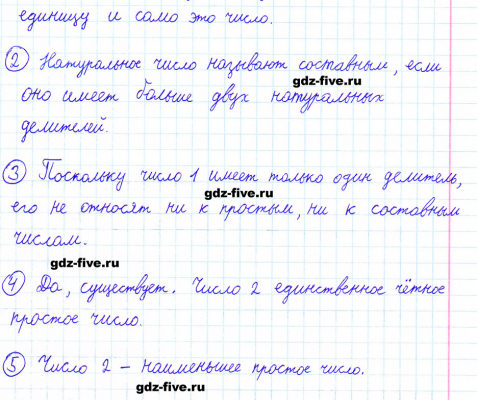 единицу и само это число.
② Натуральное число называют составным, если
gdz-five.ru
оно имеет больше двух натуральных
делителей.
gdz-five.ru
③ Поскольку число 1 имеет только один делитель,
gdz-five.ru
его не относят ни к простым, ни к составным
числам.
gdz-five.ru
④ Да, существует. Число 2 единственное чётное
gdz-five.ru
простое число.
⑤ Число 2 – наименьшее простое число.
gdz-five.ru